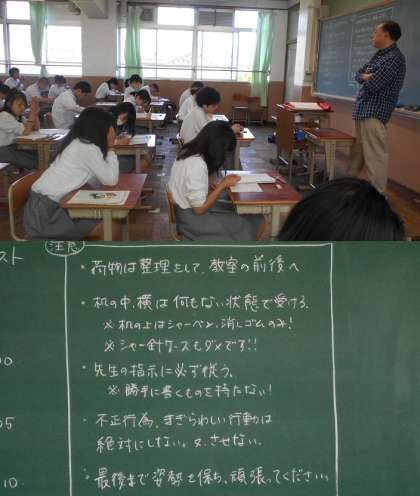 注意
スト
・荷物は整理をして、教室の前後へ
・机の中、横は何もない状態で受ける。
※机の上はシャーペン、消しゴムのみ!
※シャー針ケースもダメです!!
00
・先生の指示に必ず従う。
※勝手に書くものを持たない!
05
・不正行為、まぎらわしい行動は
絶対にしない。又、させない。
10
・最後まで姿勢を保ち、頑張ってください。